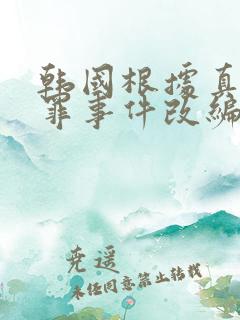 韩国根据真
罪事件改编
尧遥
未经同意禁止转载